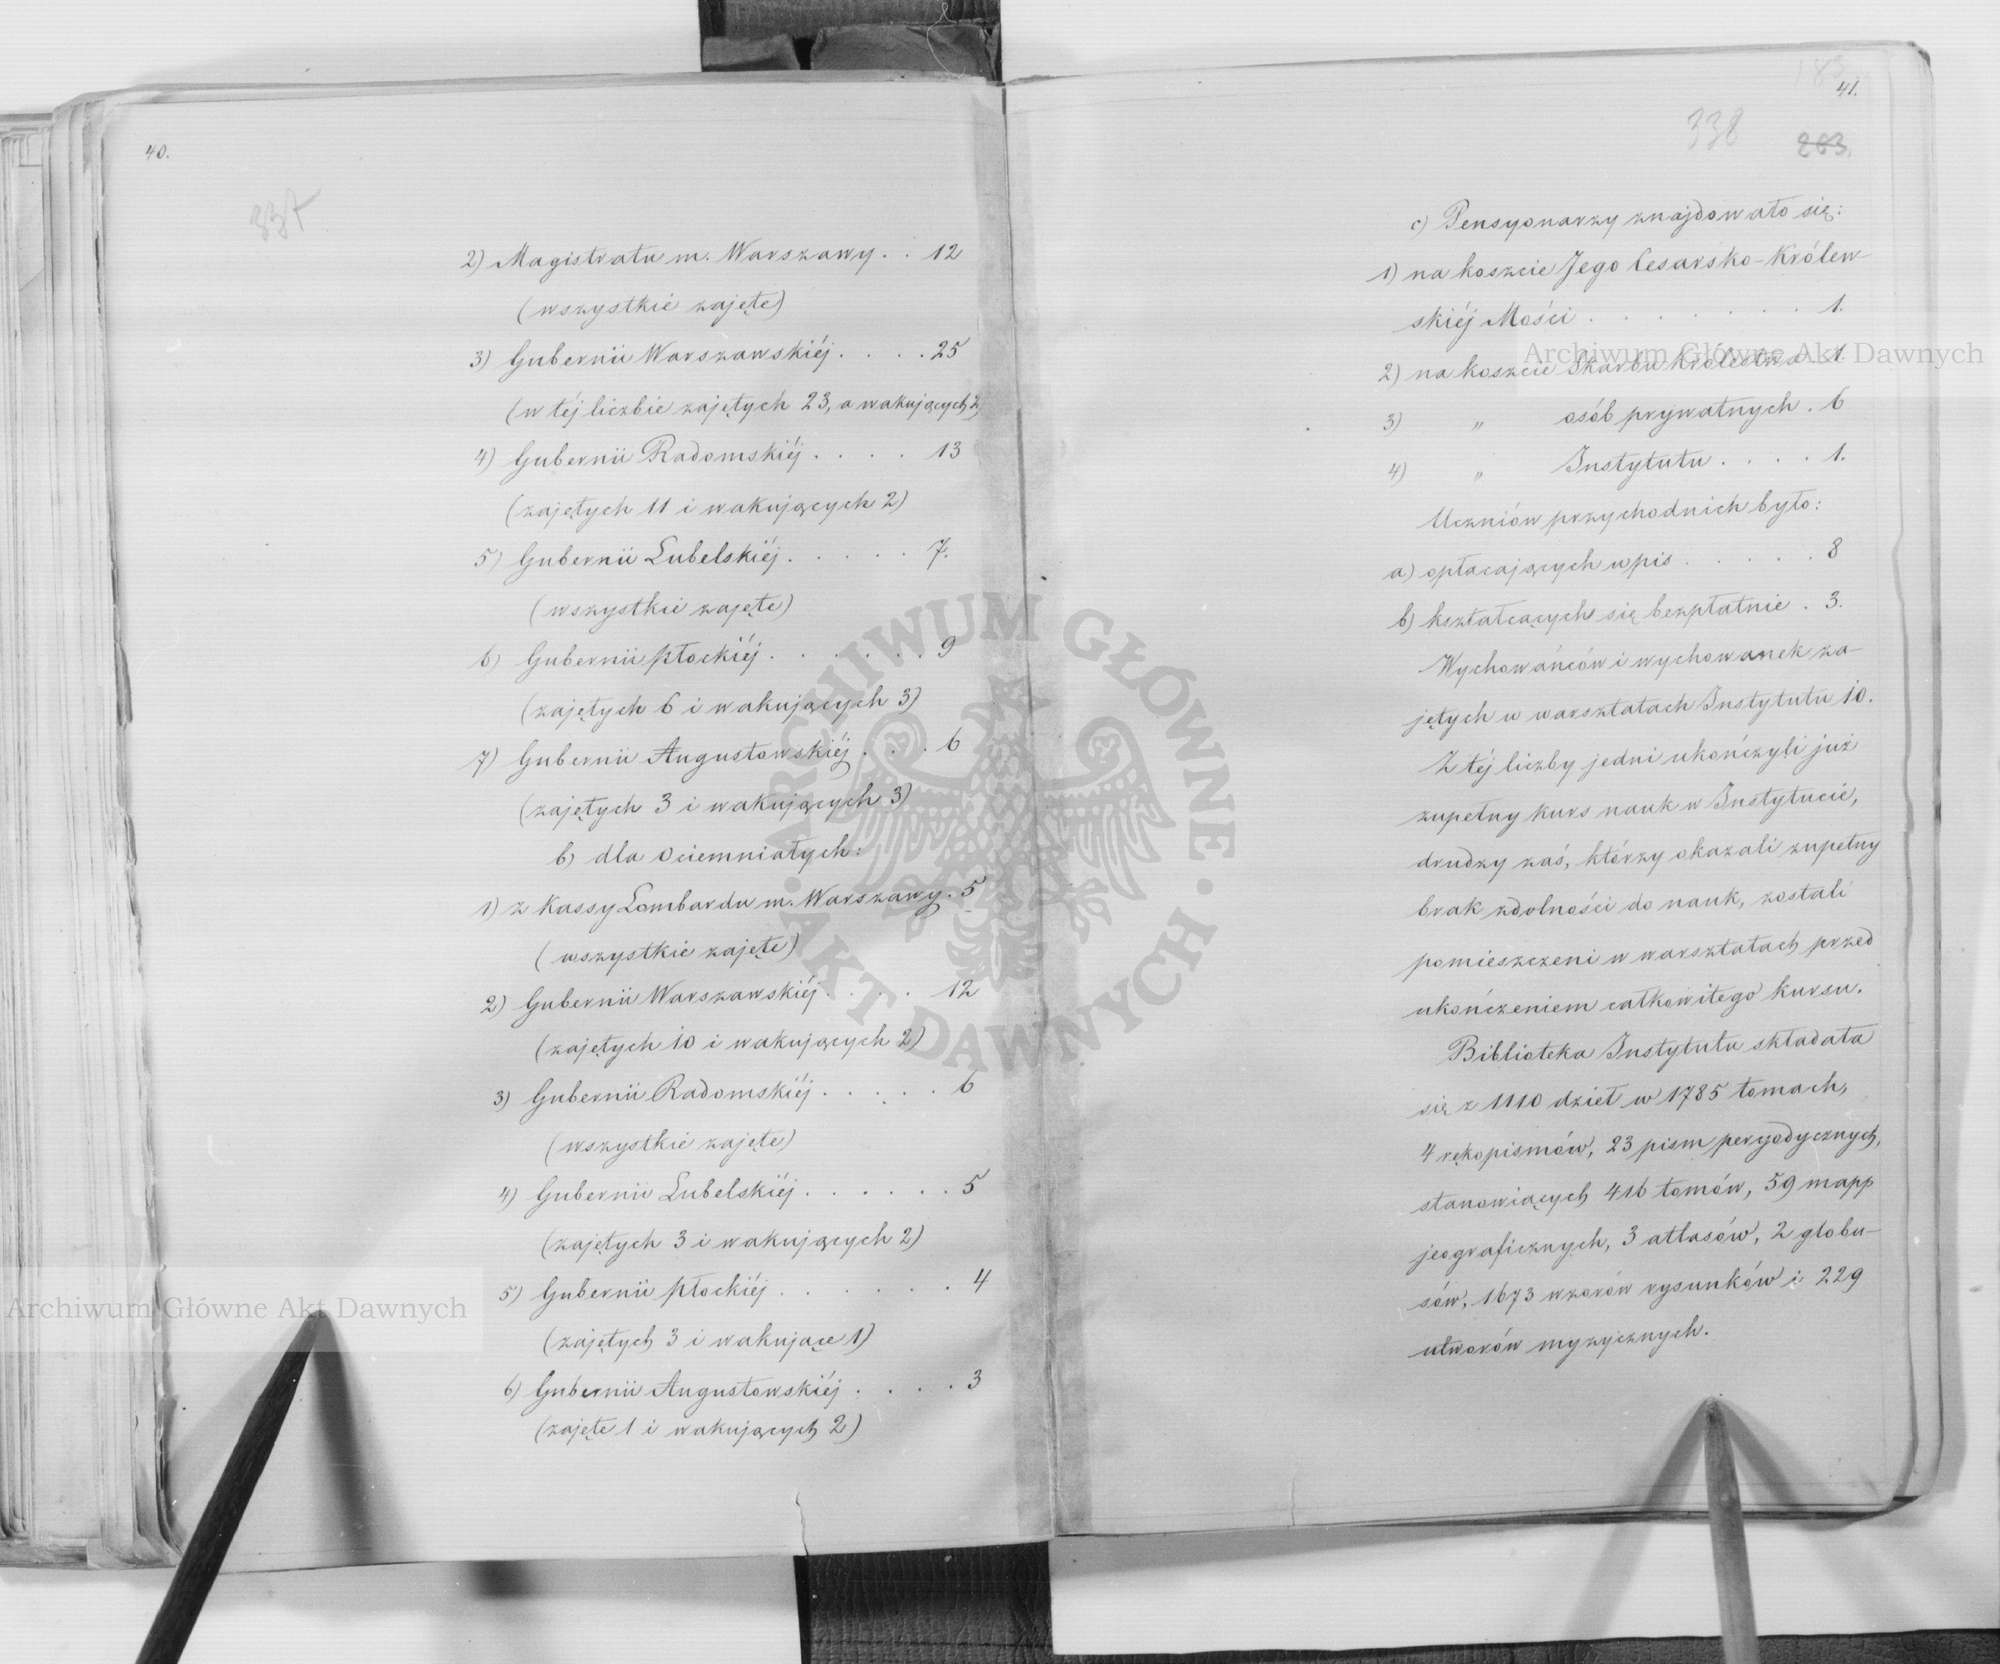 40.
337
2) Magistratu m. Warszawy . . 12
(wszystkie zajęte)
3) Gubernii Warszawskiéj . . . . 25
(w téj liczbie zajętych 23, a wakujących 2)
4) Gubernii Radomskiéj . . . . 13
(zajętych 11 i wakujących 2)
5) Gubernii Lubelskiéj . . . . . 7.
(wszystkie zajęte)
6) Gubernii płockiéj . . . . . . . 9
(zajętych 6 i wakujących 3)
7) Gubernii Augustowskiéj . . . . 6
(zajętych 3 i wakujących 3)
b) dla Ociemniałych:
1) z Kassy Lombardu m. Warszawy . 5
(wszystkie zajęte)
2) Gubernii Warszawskiéj . . . . 12
(zajętych 10 i wakujących 2)
3) Gubernii Radomskiéj . . . . . 6
(wszystkie zajęte)
4) Gubernii Lubelskiéj . . . . . . 5
(zajętych 3 i wakujących 2)
5) Gubernii płockiéj . . . . . . . 4
(zajętych 3 i wakujące 1)
6) Gubernii Augustowskiéj . . . . 3
(zajęte 1 i wakujących 2)
41.
338
283.
c) Pensyonarzy znajdowało się:
1) na koszcie Jego Cesarsko-Królew-
skiéj Mości . . . . . . . . 1.
2) na koszcie Skarbu Królestwa . . 1
3) „ osób prywatnych . 6
4) „ Instytutu . . . . 1.
Uczniów przychodnich było:
a) opłacających wpis . . . . . . 8
b) kształcących się bezpłatnie . 3.
Wychowańców i wychowanek za-
jętych w warsztatach Instytutu 10.
Z téj liczby jedni ukończyli już
zupełny kurs nauk w Instytucie,
drudzy zaś, którzy okazali zupełny
brak zdolności do nauk, zostali
pomieszczeni w warsztatach przed
ukończeniem całkowitego kursu.
Biblioteka Instytutu składała
się z 1110 dzieł w 1785 tomach,
4 rękopismów, 23 pism peryodycznych,
stanowiących 416 tomów, 59 mapp
jeograficznych, 3 atlasów, 2 globu-
sów, 1673 wzorów rysunków i 229
utworów myzycznych.
Archiwum Główne Akt Dawnych
Archiwum Główne Akt Dawnych
ARCHIWUM GŁÓWNE · AKT DAWNYCH ·